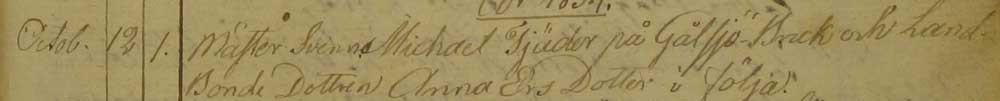 Octob. 12 1. Mäster Svenn Michael Tjäder på Gålsjö-Bruk och Land-
Bonde Dottren Anna Ers Dotter i följa.